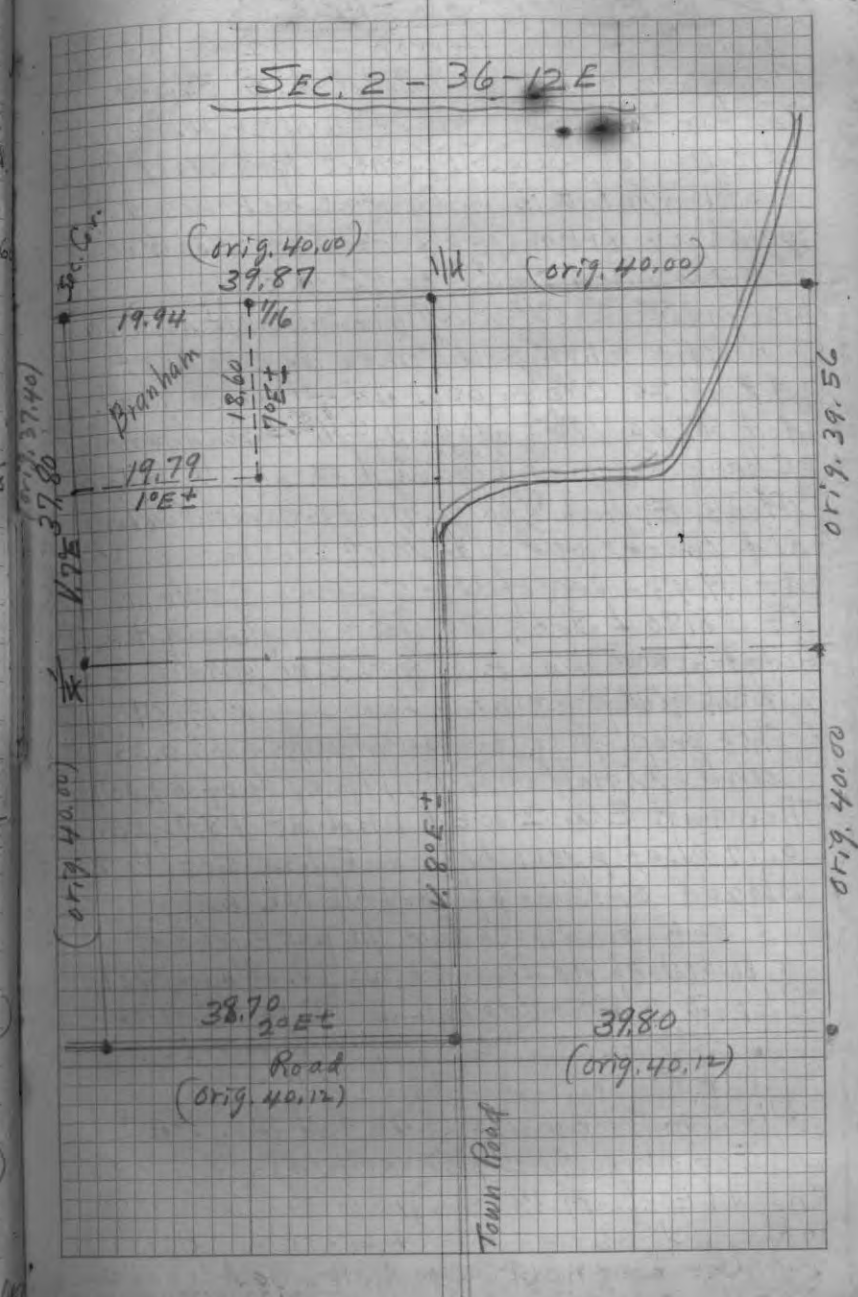 SEC. 2 - 36-12E
Sec. Cr.
(orig. 40.00)
39.87
1/4
(orig. 40.00)
19.94
1/16
Branham
18.60
7°E±
19.79
1°E±
(orig. 37.40)
37.80
V. 7°E
1/4
orig. 39.56
(orig. 40.00)
V. 8°E±
orig. 40.00
38.70
2°E±
Road
(orig. 40.12)
39.80
(orig. 40.12)
Town Road